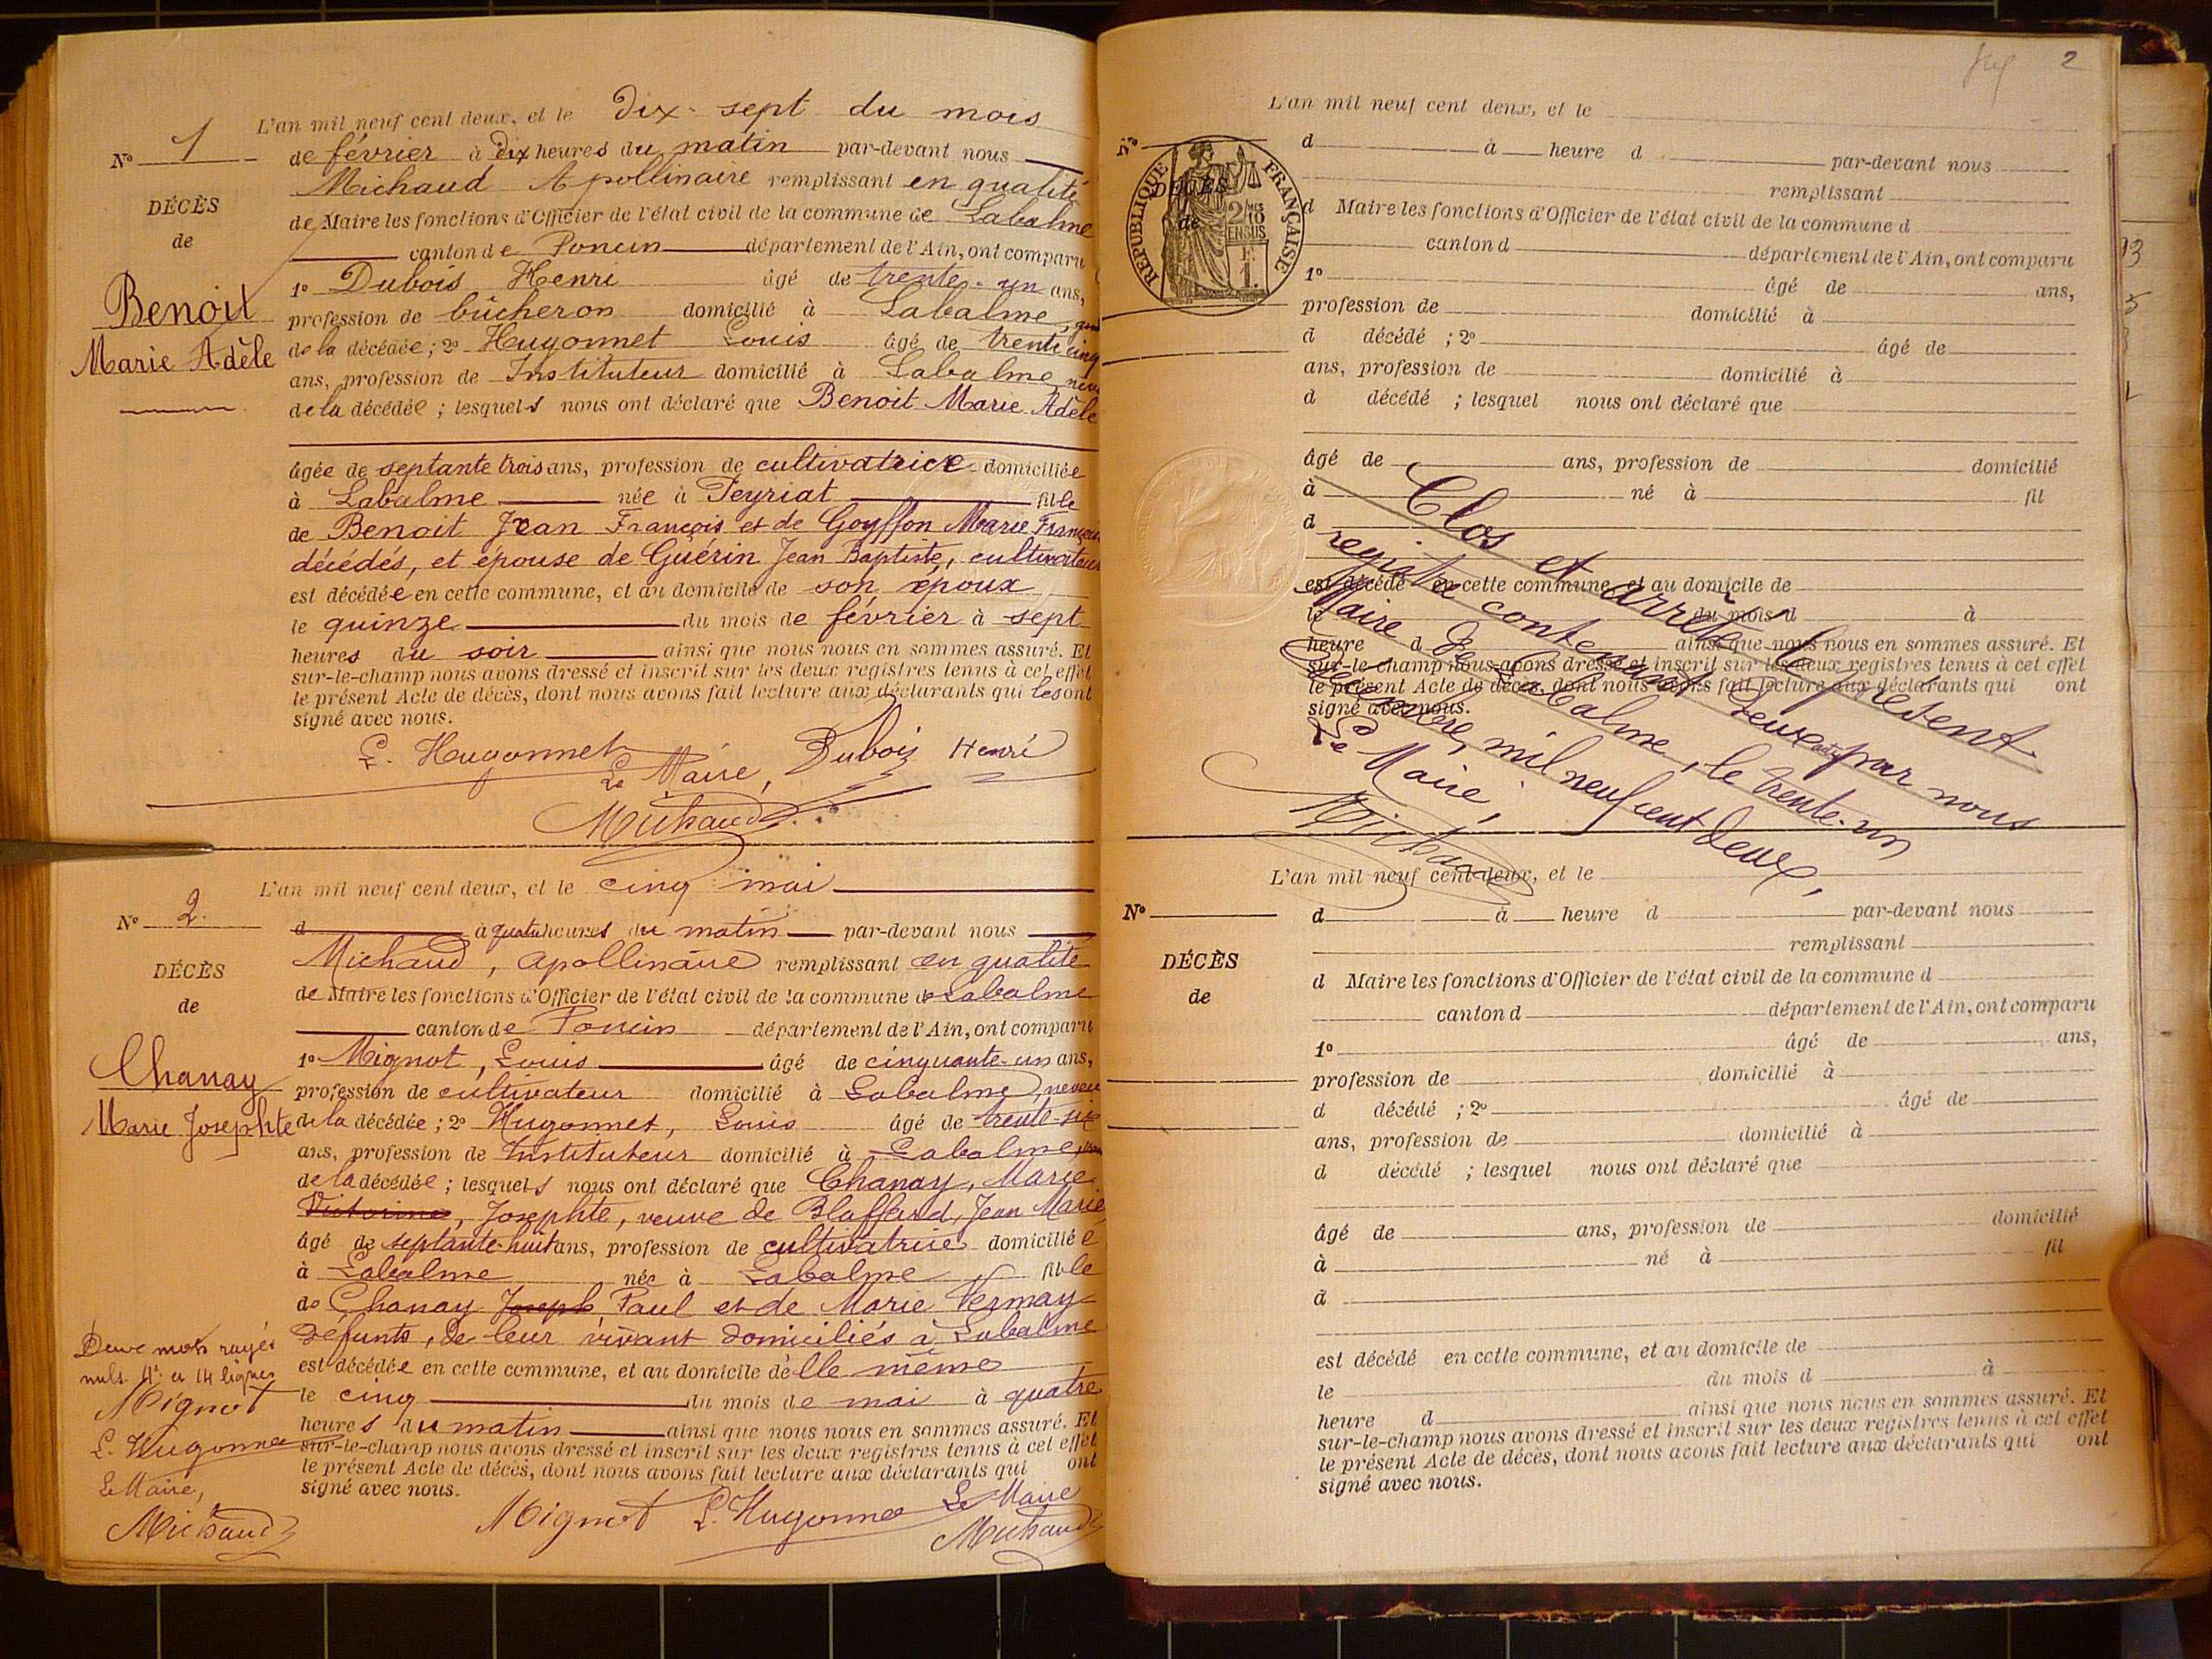 L'an mil neuf cent deux, et le Dix-sept du mois
N° 1 de février à Dix heures du matin par-devant nous
Michaud Apollinaire remplissant en qualité
DÉCÈS
de Maire les fonctions d'Officier de l'état civil de la commune de Labalme
de
canton de Poncin département de l'Ain, ont comparu
1° Dubois Henri âgé de trente-un ans,
Benoit
profession de bûcheron domicilié à Labalme,
de la décédée ; 2° Hugonnet Louis âgé de trente cinq
Marie Adèle
ans, profession de Instituteur domicilié à Labalme
de la décédée ; lesquels nous ont déclaré que Benoit Marie Adèle
âgée de septante trois ans, profession de cultivatrice domiciliée
à Labalme née à Peyriat fille
de Benoit Jean François et de Goyffon Marie Françoise
décédés, et épouse de Guérin Jean Baptiste, cultivateur
est décédée en cette commune, et au domicile de son époux
le quinze du mois de février à sept
heures du soir ainsi que nous nous en sommes assuré. Et
sur-le-champ nous avons dressé et inscrit sur les deux registres tenus à cet effet
le présent Acte de décès, dont nous avons fait lecture aux déclarants qui les ont
signé avec nous.
L. Hugonnet Le Maire, Dubois Henri
Michaud
L'an mil neuf cent deux, et le cinq mai
N° 2.
d à quatre heures du matin par-devant nous
Michaud, Apollinaire remplissant en qualité
DÉCÈS
de Maire les fonctions d'Officier de l'état civil de la commune de Labalme
de
canton de Poncin département de l'Ain, ont comparu
1° Mignot, Louis âgé de cinquante-un ans,
Chanay
profession de cultivateur domicilié à Labalme, neveu
Marie Josephte
de la décédée ; 2° Hugonnet, Louis âgé de trente-six
ans, profession de Instituteur domicilié à Labalme,
de la décédée ; lesquels nous ont déclaré que Chanay, Marie
Victorine, Josephte, veuve de Blaffard, Jean Marie
âgé de septante-huit ans, profession de cultivatrice domiciliée
à Labalme née à Labalme fille
de Chanay Joseph Paul et de Marie Vermay
défunts, de leur vivant domiciliés à Labalme
est décédée en cette commune, et au domicile d'elle même
le cinq du mois de mai à quatre
heures du matin ainsi que nous nous en sommes assuré. Et
sur-le-champ nous avons dressé et inscrit sur les deux registres tenus à cet effet
le présent Acte de décès, dont nous avons fait lecture aux déclarants qui ont
signé avec nous.
Mignot L. Hugonnet Le Maire
Michaud
Deux mots rayés
nuls 4e et 14 lignes
Mignot
L. Hugonnet
Le Maire,
Michaud
2
L'an mil neuf cent deux, et le
N°
d à heure d par-devant nous
remplissant
DÉCÈS
de
RÉPUBLIQUE FRANÇAISE
2/10 EN SUS
F. 1.
d Maire les fonctions d'Officier de l'état civil de la commune d
canton d département de l'Ain, ont comparu
1° âgé de ans,
profession de domicilié à
d décédé ; 2° âgé de
ans, profession de domicilié à
d décédé ; lesquel nous ont déclaré que
âgé de ans, profession de domicilié
à né à fil
d
est décédé en cette commune, et au domicile de
le du mois d à
heure d ainsi que nous nous en sommes assuré. Et
sur-le-champ nous avons dressé et inscrit sur les deux registres tenus à cet effet
le présent Acte de décès, dont nous avons fait lecture aux déclarants qui ont
signé avec nous.
Clos et arrêté le présent
registre contenant deux actes par nous
Maire de Labalme, le trente-un
décembre, mil neuf cent deux,
Le Maire,
Michaud
L'an mil neuf cent deux, et le
N°
d à heure d par-devant nous
remplissant
DÉCÈS
d Maire les fonctions d'Officier de l'état civil de la commune d
de
canton d département de l'Ain, ont comparu
1° âgé de ans,
profession de domicilié à
d décédé ; 2° âgé de
ans, profession de domicilié à
d décédé ; lesquel nous ont déclaré que
âgé de ans, profession de domicilié
à né à fil
d
est décédé en cette commune, et au domicile de
le du mois d à
heure d ainsi que nous nous en sommes assuré. Et
sur-le-champ nous avons dressé et inscrit sur les deux registres tenus à cet effet
le présent Acte de décès, dont nous avons fait lecture aux déclarants qui ont
signé avec nous.